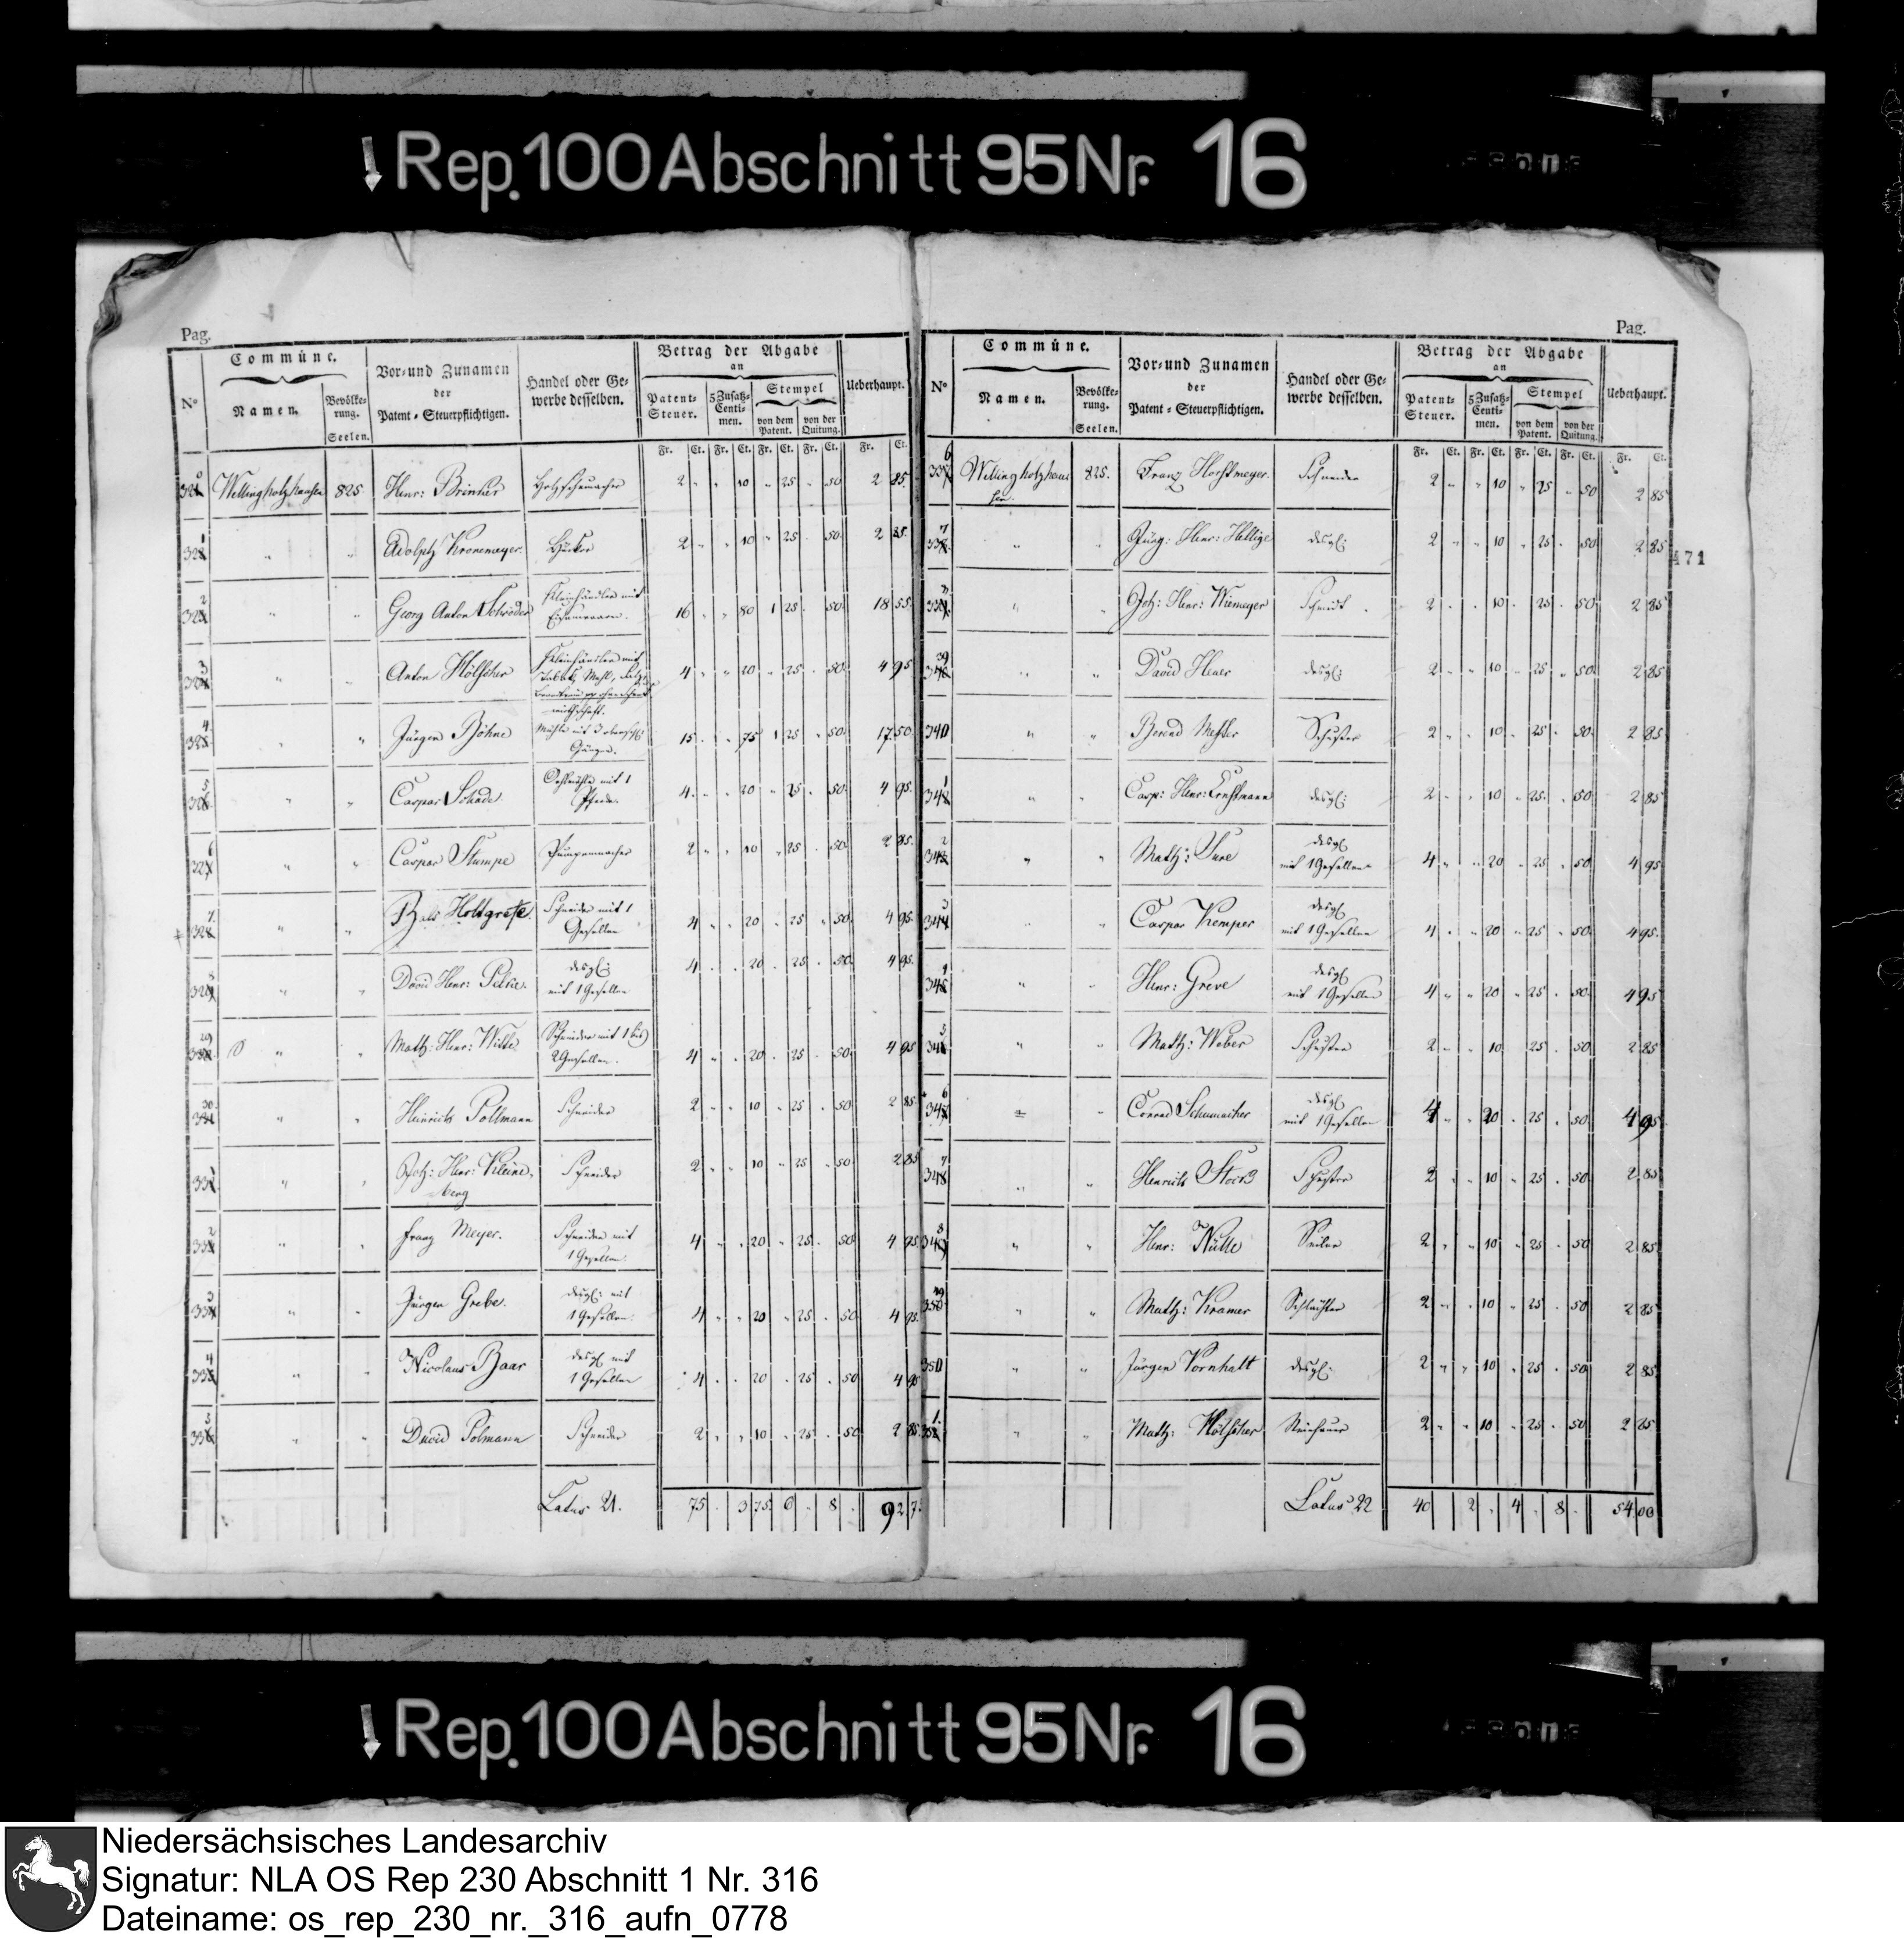 Rep. 100 Abschnitt 95 Nr. 16
Pag.
N° Commüne. Namen. Bevölkerung. Seelen. Vor- und Zunamen der Patent-Steuerpflichtigen. Handel oder Gewerbe desselben. Betrag der Abgabe an Patent-Steuer. 5 Zusatz-Centimen. Stempel von dem Patent. von der Quitung. Ueberhaupt.
Fr. Ct. Fr. Ct. Fr. Ct. Fr. Ct. Fr. Ct.
Wellingholzhausen 825. Henr: Brinker Holzschumacher 2 " " 10 " 25 " 50 2 85.
" " Adolph Kronemeyer. Höcker 2 " " 10 " 25 " 50 2 85.
" " Georg Anton Schröder Kleinhändler mit Eisenwaaren. 16 " " 80 1 25 " 50 18 55.
" " Anton Hölscher Kleinhändler mit 4 " " 20 " 25 " 50 4 95
" " Jürgen Böhne Mühle mit 3 Gängen. 15 " " 75 1 25 " 50 17 50.
" " Caspar Schade Oehlmühle mit 1 Pferde. 4 " " 20 " 25 " 50 4 95.
" " Caspar Stumpe Pumpenmacher 2 " " 10 " 25 " 50 2 85.
" " Holtgrefe. Schneider mit 1 Gesellen 4 " " 20 " 25 " 50 4 95.
" " David Henr: desgl: mit 1 Gesellen 4 " " 20 " 25 " 50 4 95.
" " Math: Henr: Witte Schneider mit 1 bis 2 Gesellen. 4 " " 20 " 25 " 50 4 95
" " Heinrich Pollmann Schneider 2 " " 10 " 25 " 50 2 85.
" " Joh: Henr: Kleineberg Schneider 2 " " 10 " 25 " 50 2 85
" " Franz Meyer. Schneider mit 1 Gesellen. 4 " " 20 " 25 " 50 4 95
" " Jürgen Grebe. desgl: mit 1 Gesellen. 4 " " 20 " 25 " 50 4 95.
" " Nicolaus Baar desgl mit 1 Gesellen 4 " " 20 " 25 " 50 4 95
" " David Polmann Schneider 2 " " 10 " 25 " 50 2 85.
Latus 21. 75 " 3 75 6 " 8 " 92 7
Pag.
N° Commüne. Namen. Bevölkerung. Seelen. Vor- und Zunamen der Patent-Steuerpflichtigen. Handel oder Gewerbe desselben. Betrag der Abgabe an Patent-Steuer. 5 Zusatz-Centimen. Stempel von dem Patent. von der Quitung. Ueberhaupt.
Fr. Ct. Fr. Ct. Fr. Ct. Fr. Ct. Fr. Ct.
Wellingholzhausen 825. Franz Horstmeyer. Schneider 2 " " 10 " 25 " 50 2 85
" " Jürg: Henr: Hellige desgl: 2 " " 10 " 25 " 50 2 85
471
" " Joh: Henr: Wiemeyer Schmidt 2 " " 10 " 25 " 50 2 85
" " David desgl: 2 " " 10 " 25 " 50 2 85
340 " " Berend Schuster 2 " " 10 " 25 " 50 2 85
" " Casp: Henr: desgl: 2 " " 10 " 25 " 50 2 85
" " Math: desgl mit 1 Gesellen 4 " " 20 " 25 " 50 4 95
" " Caspar Kemper desgl mit 1 Gesellen 4 " " 20 " 25 " 50 4 95.
" " Henr: Greve desgl mit 1 Gesellen 4 " " 20 " 25 " 50 4 95
" " Math: Weber Schuster 2 " " 10 " 25 " 50 2 85
" " Conrad Schumacher desgl mit 1 Gesellen 4 " " 20 " 25 " 50 4 95
" " Henrich Schuster 2 " " 10 " 25 " 50 2 85
" " Henr: Nülle Seiler 2 " " 10 " 25 " 50 2 85
" " Math: Kramer Schlachter 2 " " 10 " 25 " 50 2 85
350 " " Jürgen Vornhalt desgl: 2 " " 10 " 25 " 50 2 85
" " Math: Hölscher 2 " " 10 " 25 " 50 2 85
Latus 22 40 2 " 4 " 8 " 54 00
Rep. 100 Abschnitt 95 Nr. 16
Niedersächsisches Landesarchiv
Signatur: NLA OS Rep 230 Abschnitt 1 Nr. 316
Dateiname: os_rep_230_nr._316_aufn_0778